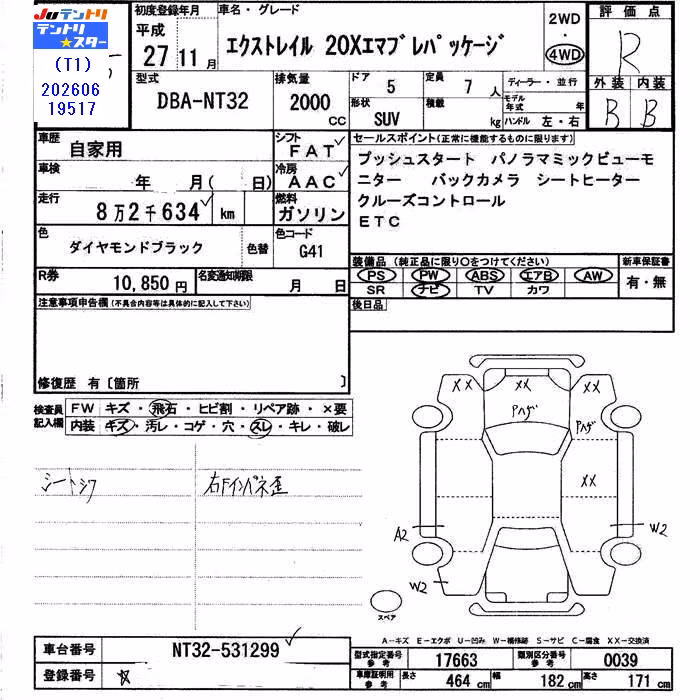 Juテントリ
テントリ
★スター
(T1)
202606
19517
初度登録年月
平成
27 11 月
車名・グレード
エクストレイル 20Xエマブレパッケージ
2WD
・
4WD
評価点
R
外装 内装
B B
型式
DBA-NT32
排気量
2000
cc
ドア 5
定員 7 人
形状
SUV
積載
kg
ディーラー・並行
モデル年式 年
ハンドル 左・右
車歴
自家用
シフト
FAT
車検
年 月( 日)
冷房
AAC
走行
8万2千634 km
燃料
ガソリン
色
ダイヤモンドブラック
色替
色コード
G41
R券
10,850円
名変通知期限
月 日
セールスポイント(正常に機能するものに限ります)
プッシュスタート パノラマミックビューモ
ニター バックカメラ シートヒーター
クルーズコントロール
ETC
装備品(純正品に限り○をつけてください)
新車保証書
PS PW ABS エアB AW
SR ナビ TV カワ
有・無
後日品
注意事項申告欄(不具合内容等は具体的に記入して下さい)
修復歴 有〔箇所 〕
検査員
記入欄
FW キズ・飛石・ヒビ割・リペア跡・×要
内装 キズ・汚レ・コゲ・穴・スレ・キレ・破レ
シートシワ
右Fインパネ歪
XX
XX
XX
Pハゲ
Pハゲ
XX
A2
W2
W2
スペア
A-キズ E-エクボ U-凹み W-補修跡 S-サビ C-腐食 XX-交換済
車台番号
NT32-531299
登録番号
型式指定番号
参考
17663
類別区分番号
参考
0039
車庫証明用
参考
長さ 464 cm
幅 182 cm
高さ 171 cm